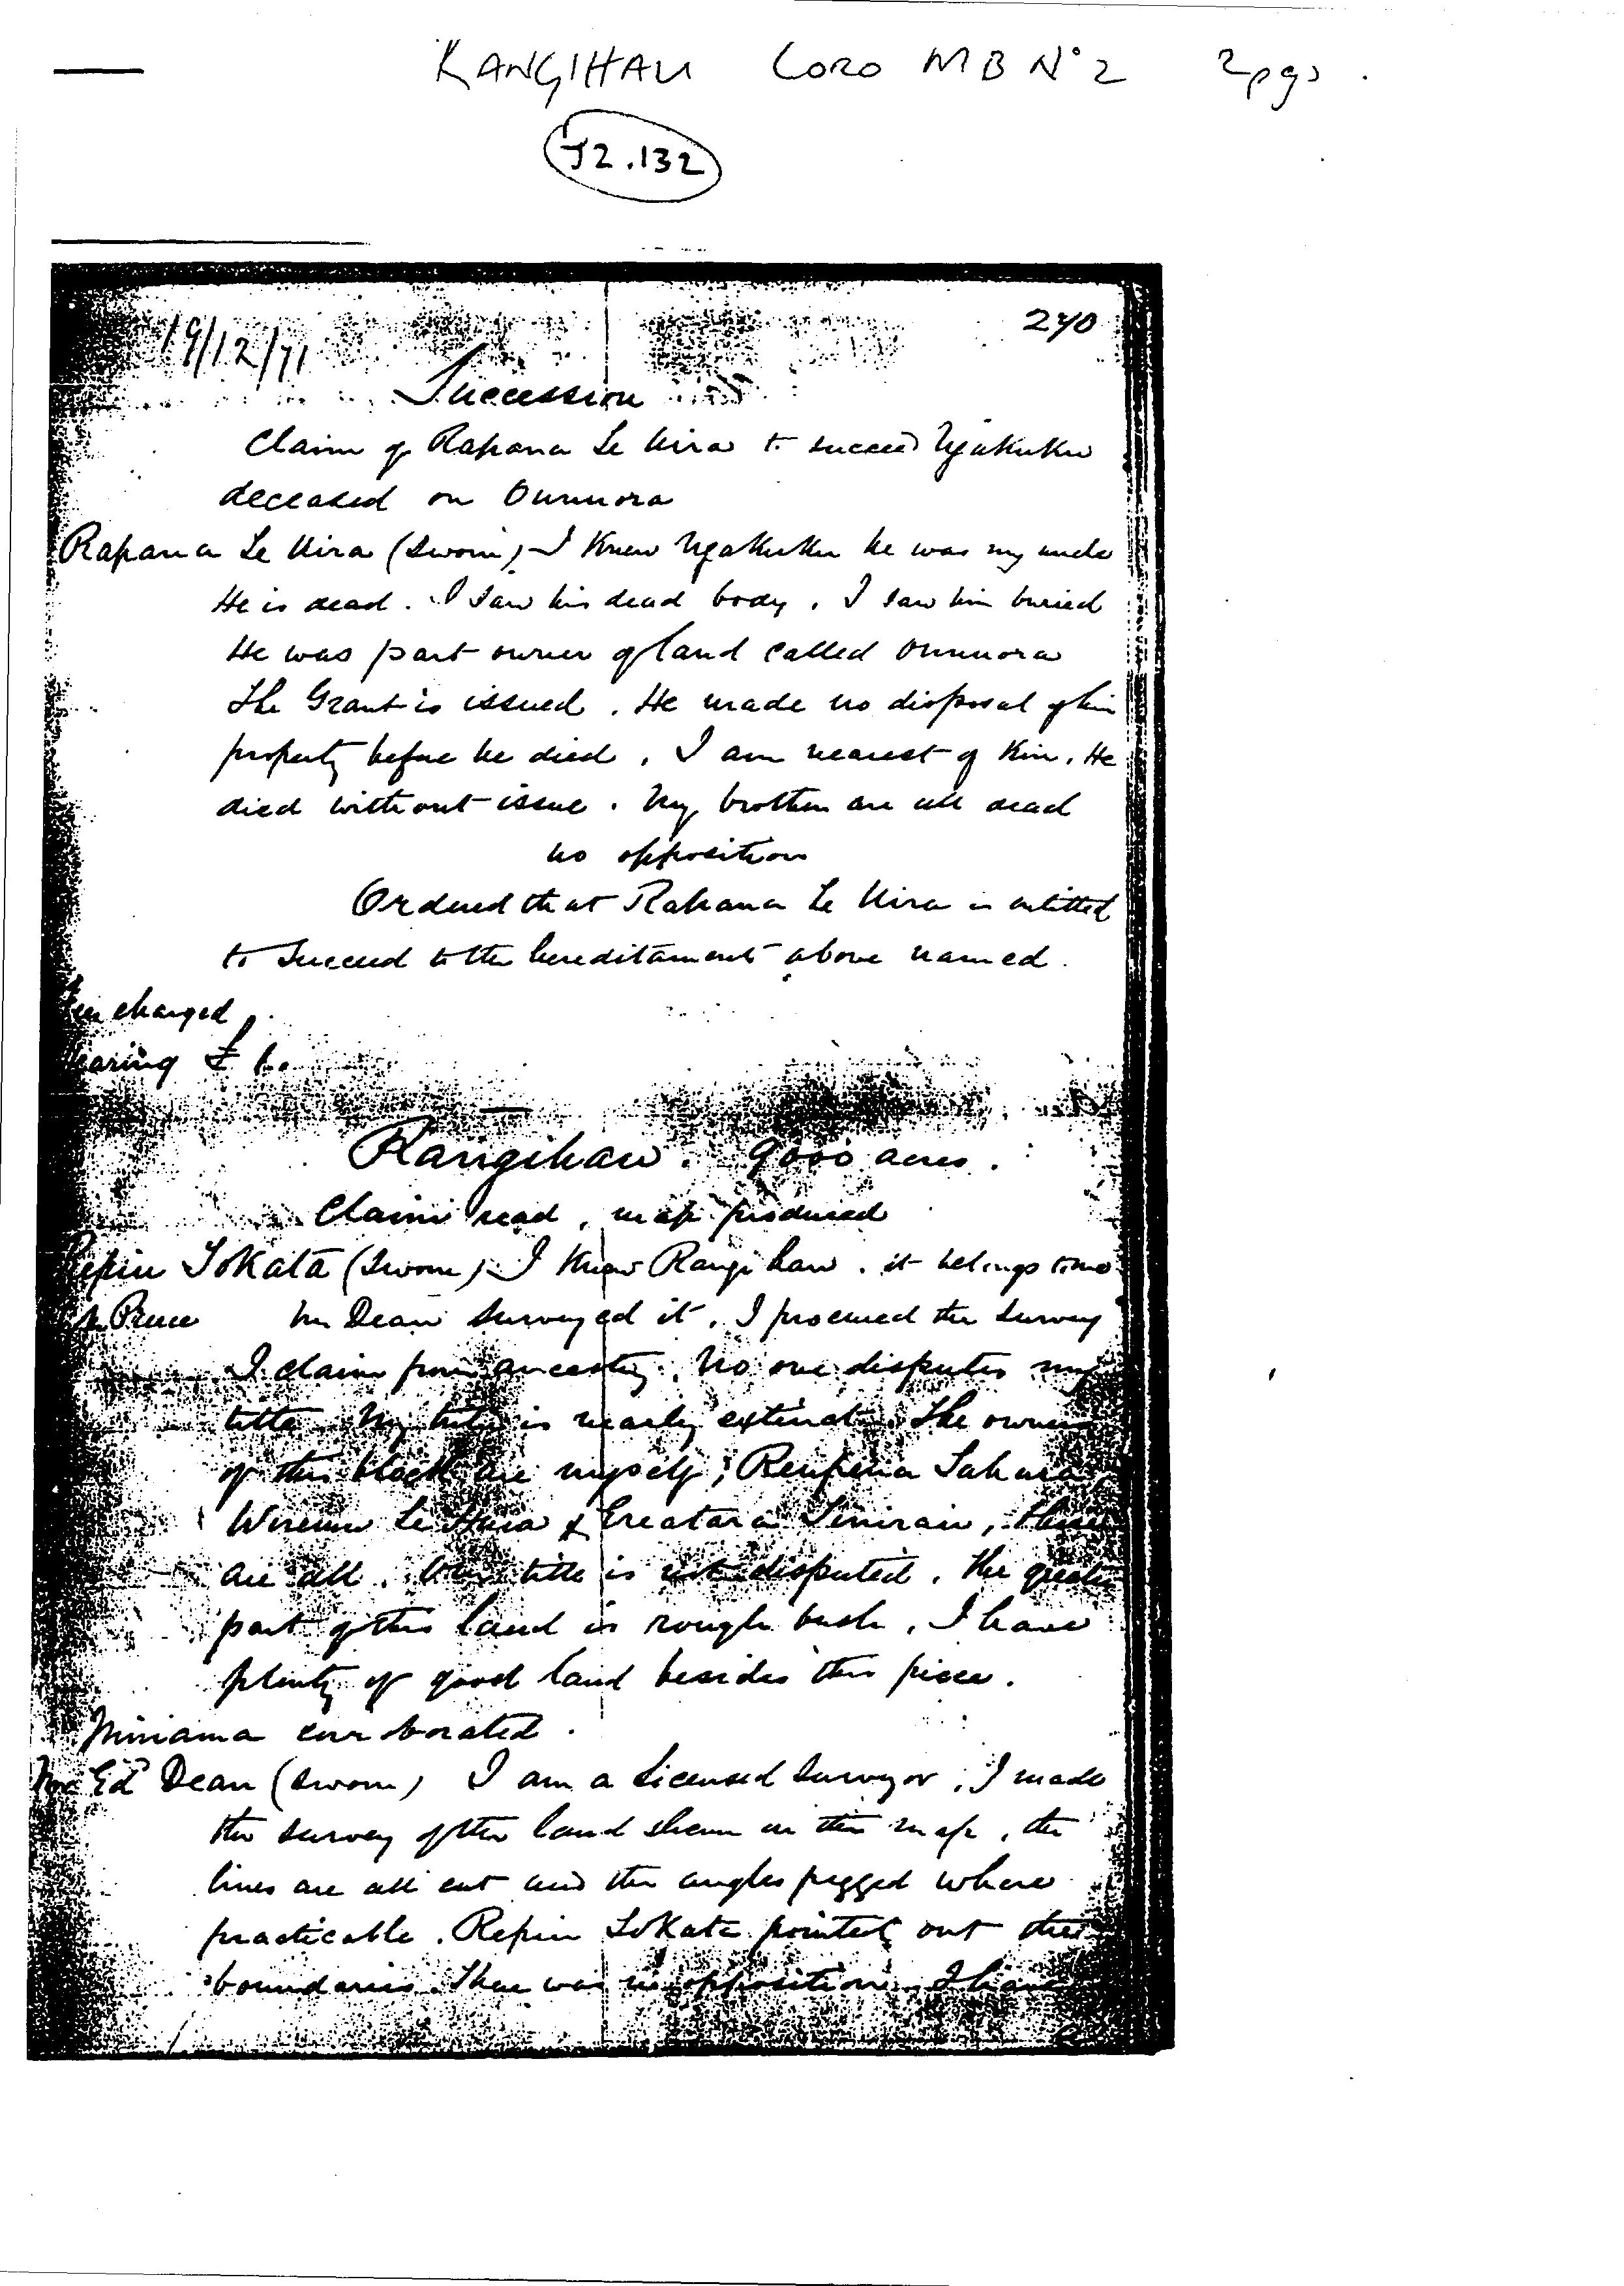 RANGIHAU CORO MB No 2 2pgs.
J2.132
240
19/12/71
Succession
Claim of Rapana Te Kira to succeed Ngakuku
deceased on Oumuora
Rapana Te Kira (Sworn) I knew Ngakuku he was my uncle
He is dead. I saw his dead body. I saw him buried
He was part owner of land called Oumuora
The Grant is issued. He made no disposal of his
property before he died. I am nearest of kin. He
died without issue. My brothers are all dead
no opposition
Ordered that Rapana Te Kira is entitled
to succeed to the hereditament above named.
charged
£ 1.
Rangihau. 9000 acres.
Claim read, map produced
Tokata (Sworn) I know Rangihau. it belongs to me
Mr Dean surveyed it. I procured the survey
I claim from ancestry. No one disputes my
title. My tribe is nearly extinct. The owners
of this block are myself, Reupena
Wiremu Te &
are all. title is not disputed. The greater
part of this land is rough bush. I have
plenty of good land besides this piece.
Miriama corroborated.
Dean (Sworn) I am a licensed surveyor. I made
the survey of the land shewn on this map. the
lines are all cut and the angles pegged where
practicable. Repiu Tokata pointed out the
boundaries. There was no opposition. I have